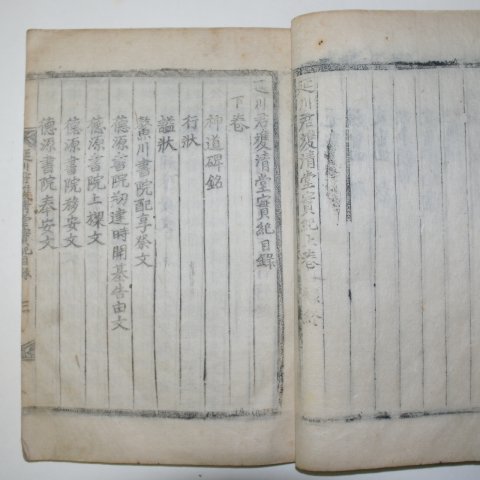 延川君雙清堂實紀上卷終
延川君雙清堂實紀目錄
下卷
神道碑銘
行狀
諡狀
鷺川書院配享祭文
德源書院刱建時開基告由文
德源書院上樑文
德源書院移安文
德源書院奉安文